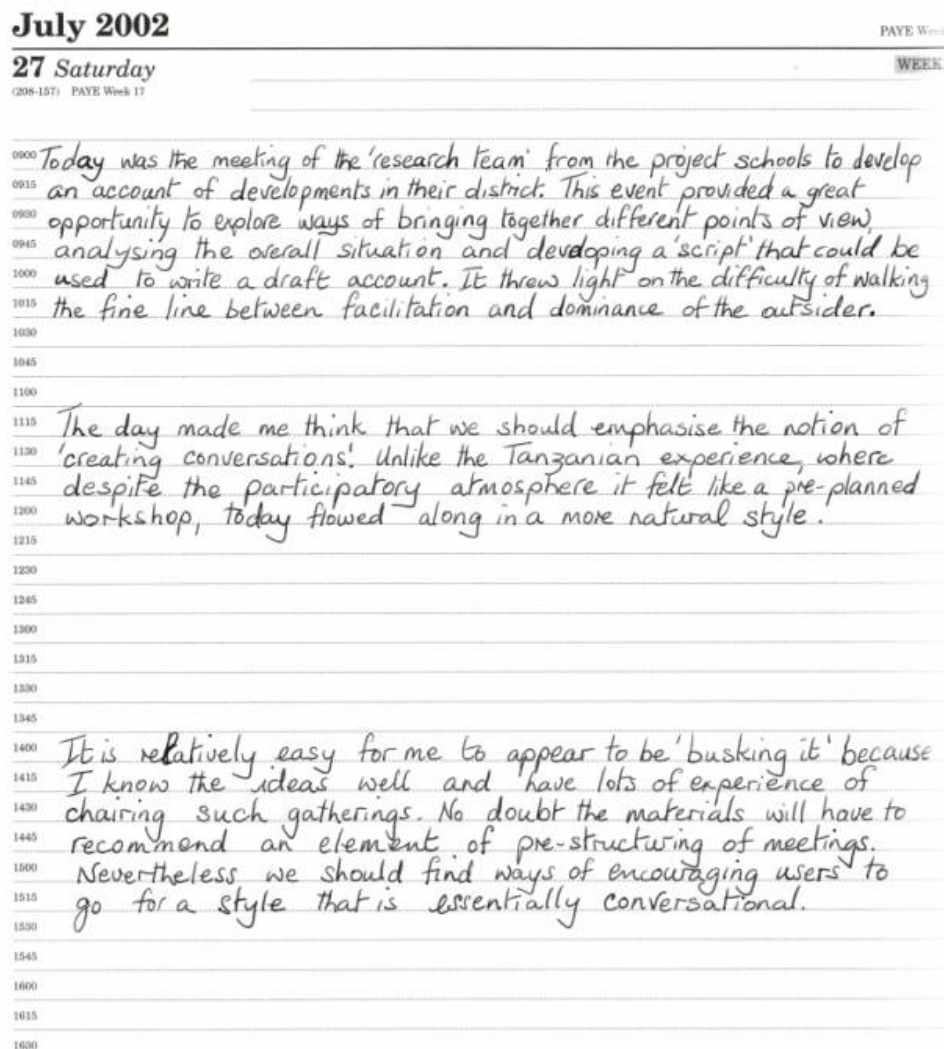 July 2002
PAYE
27 Saturday
WEEK
(208-157) PAYE Week 17
0900 Today was the meeting of the 'research team' from the project schools to develop
0915 an account of developments in their district. This event provided a great
0930 opportunity to explore ways of bringing together different points of view,
0945 analysing the overall situation and developing a 'script' that could be
1000 used to write a draft account. It throw light on the difficulty of walking
1015 the fine line between facilitation and dominance of the outsider.
1030
1045
1100
1115 The day made me think that we should emphasise the notion of
1130 'creating conversations'. Unlike the Tanzanian experience, where
1145 despite the participatory atmosphere it felt like a pre-planned
1200 workshop, today flowed along in a more natural style.
1215
1230
1245
1300
1315
1330
1345
1400 It is relatively easy for me to appear to be 'busking it' because
1415 I know the ideas well and have lots of experience of
1430 chairing such gatherings. No doubt the materials will have to
1445 recommend an element of pre-structuring of meetings.
1500 Nevertheless we should find ways of encouraging users to
1515 go for a style that is essentially conversational.
1530
1545
1600
1615
1630